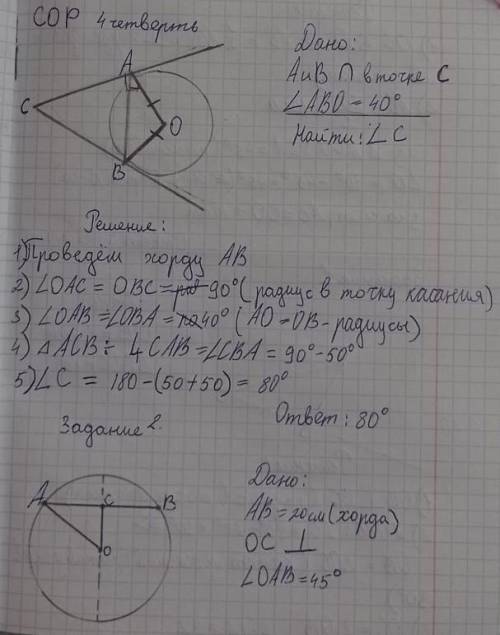 СОР 4 четверть
Дано:
А и В ∩ в точке С
∠ABO = 40°
Найти: ∠C
A
C
O
B
Решение:
1) Проведём хорду АВ
2) ∠OAC = OBC = 90° (радиус в точку касания)
3) ∠OAB = ∠OBA = 40° (AO = OB - радиусы)
4) △ACB: ∠CAB = ∠CBA = 90° - 50°
5) ∠C = 180 - (50 + 50) = 80°
Ответ: 80°
Задание 2.
Дано:
AB = 20см (хорда)
OC ⊥
∠OAB = 45°
A
C
B
O